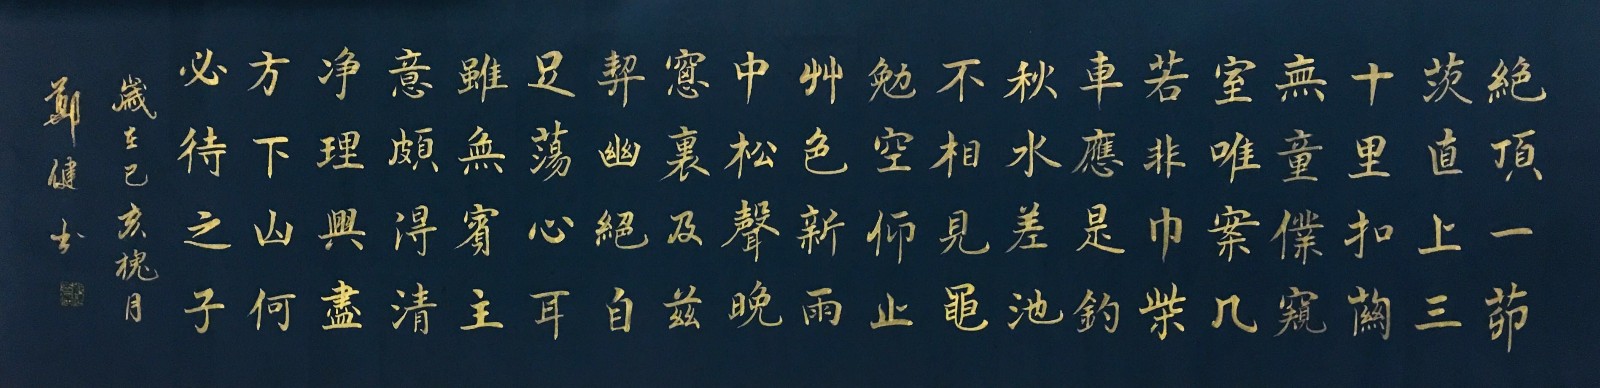 絕頂一茆
茨直上三
十里扣關
無童僕窺
室唯案几
若非巾柴
車應是釣
秋水差池
不相見黽
勉空仰止
艸色新雨
中松聲晚
窻裏及茲
契幽絕自
足蕩心耳
雖無賓主
意頗得清
净理興盡
方下山何
必待之子
歲在己亥槐月
鄭健書